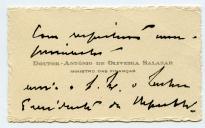 Com respeitosos cum-
primentos
DOUTOR ANTÓNIO DE OLIVEIRA SALAZAR
MINISTRO DAS FINANÇAS
envia a S. Ex. o Senhor
Presidente da República